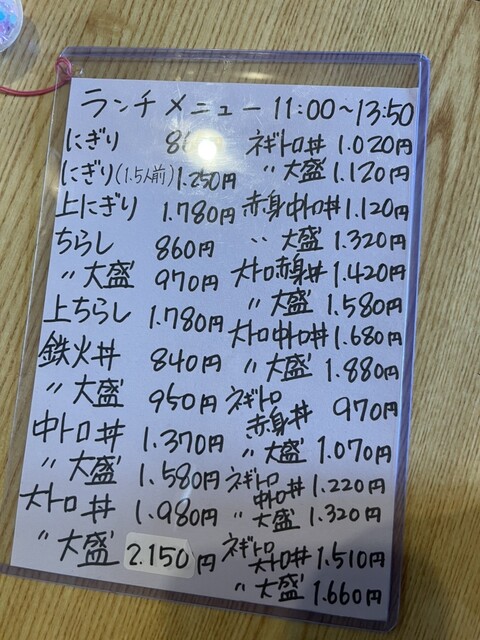 ランチメニュー 11:00～13:50
にぎり 8
にぎり(1.5人前) 1.250円
上にぎり 1.780円
ちらし 860円
〃 大盛 970円
上ちらし 1.780円
鉄火丼 840円
〃 大盛 950円
中トロ丼 1.370円
〃 大盛 1.580円
大トロ丼 1.980円
〃 大盛 2.150円
ネギトロ丼 1.020円
〃 大盛 1.120円
赤身中トロ丼 1.120円
〃 大盛 1.320円
大トロ赤身丼 1.420円
〃 大盛 1.580円
大トロ中トロ丼 1.680円
〃 大盛 1.880円
ネギトロ
赤身丼 970円
〃 大盛 1.070円
ネギトロ
中トロ丼 1.220円
〃 大盛 1.320円
ネギトロ
大トロ丼 1.510円
〃 大盛 1.660円